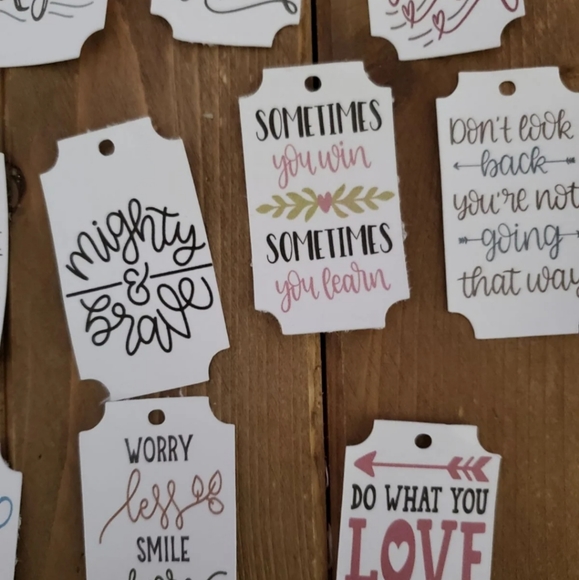 mighty
&
brave
SOMETIMES
you win
SOMETIMES
you learn
Don't look
back
you're not
going
that way
WORRY
less
SMILE
DO WHAT YOU
LOVE